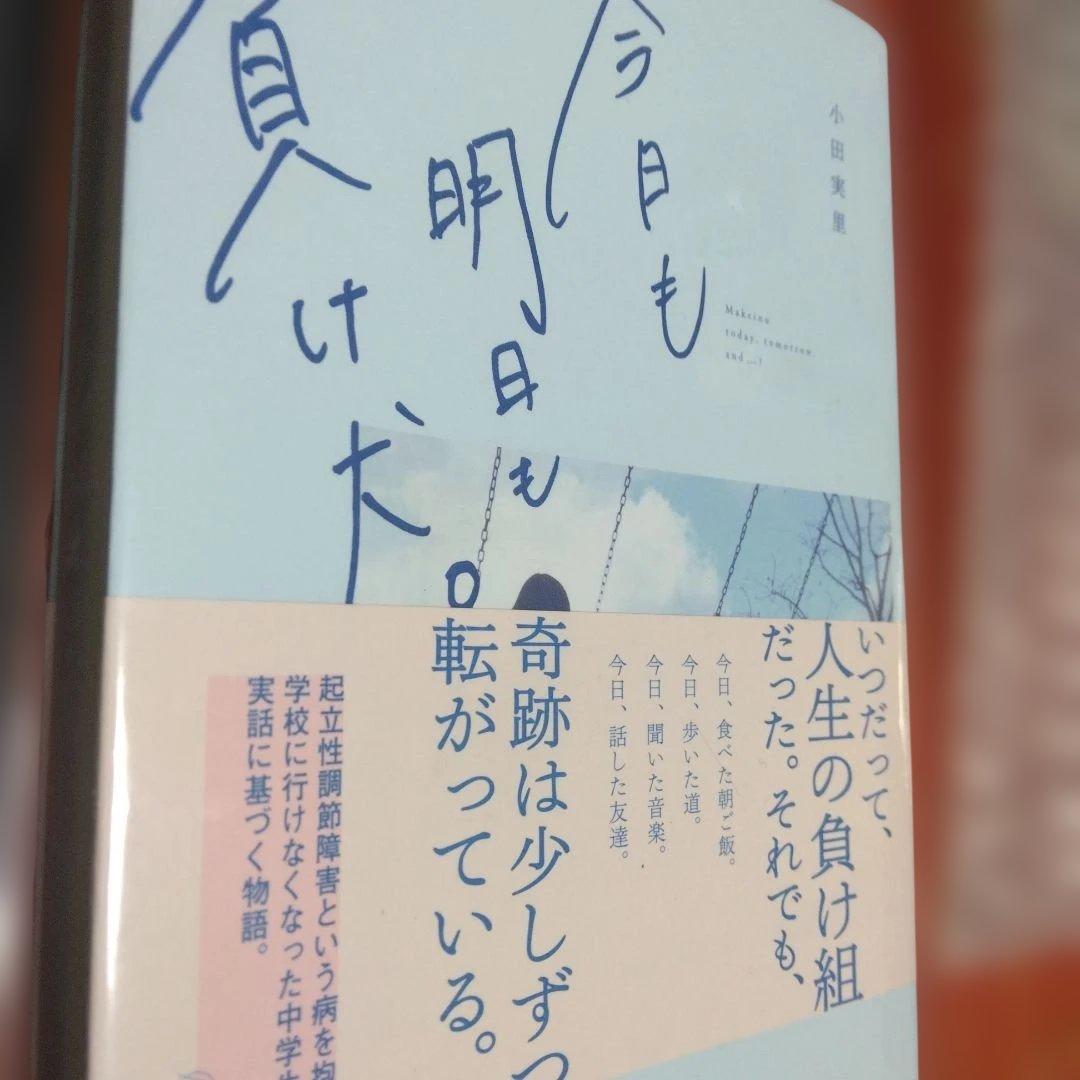 今日も
明日も
負け犬。
小田実里
Makeinu
today, tomorrow,
and ...?
いつだって、
人生の負け組
だった。それでも、
今日、食べた朝ご飯。
今日、歩いた道。
今日、聞いた音楽。
今日、話した友達。
奇跡は少しずつ
転がっている。
起立性調節障害という病を抱
学校に行けなくなった中学生
実話に基づく物語。